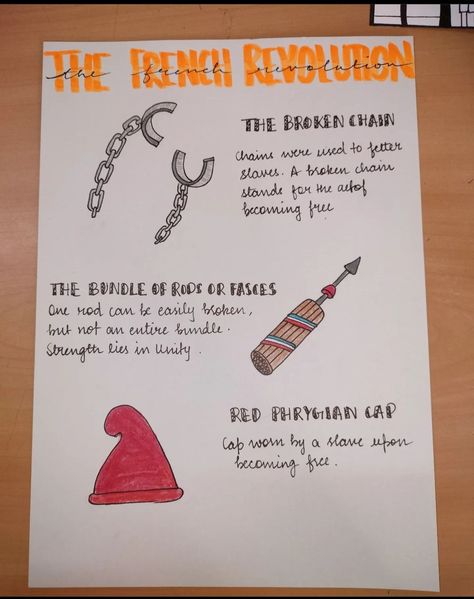 THE FRENCH REVOLUTION
the french revolution
THE BROKEN CHAIN
Chains were used to fetter
slaves. A broken chain
stands for the act of
becoming free
THE BUNDLE OF RODS OR FASCES
One rod can be easily broken,
but not an entire bundle.
Strength lies in Unity.
RED PHRYGIAN CAP
Cap worn by a slave upon
becoming free.